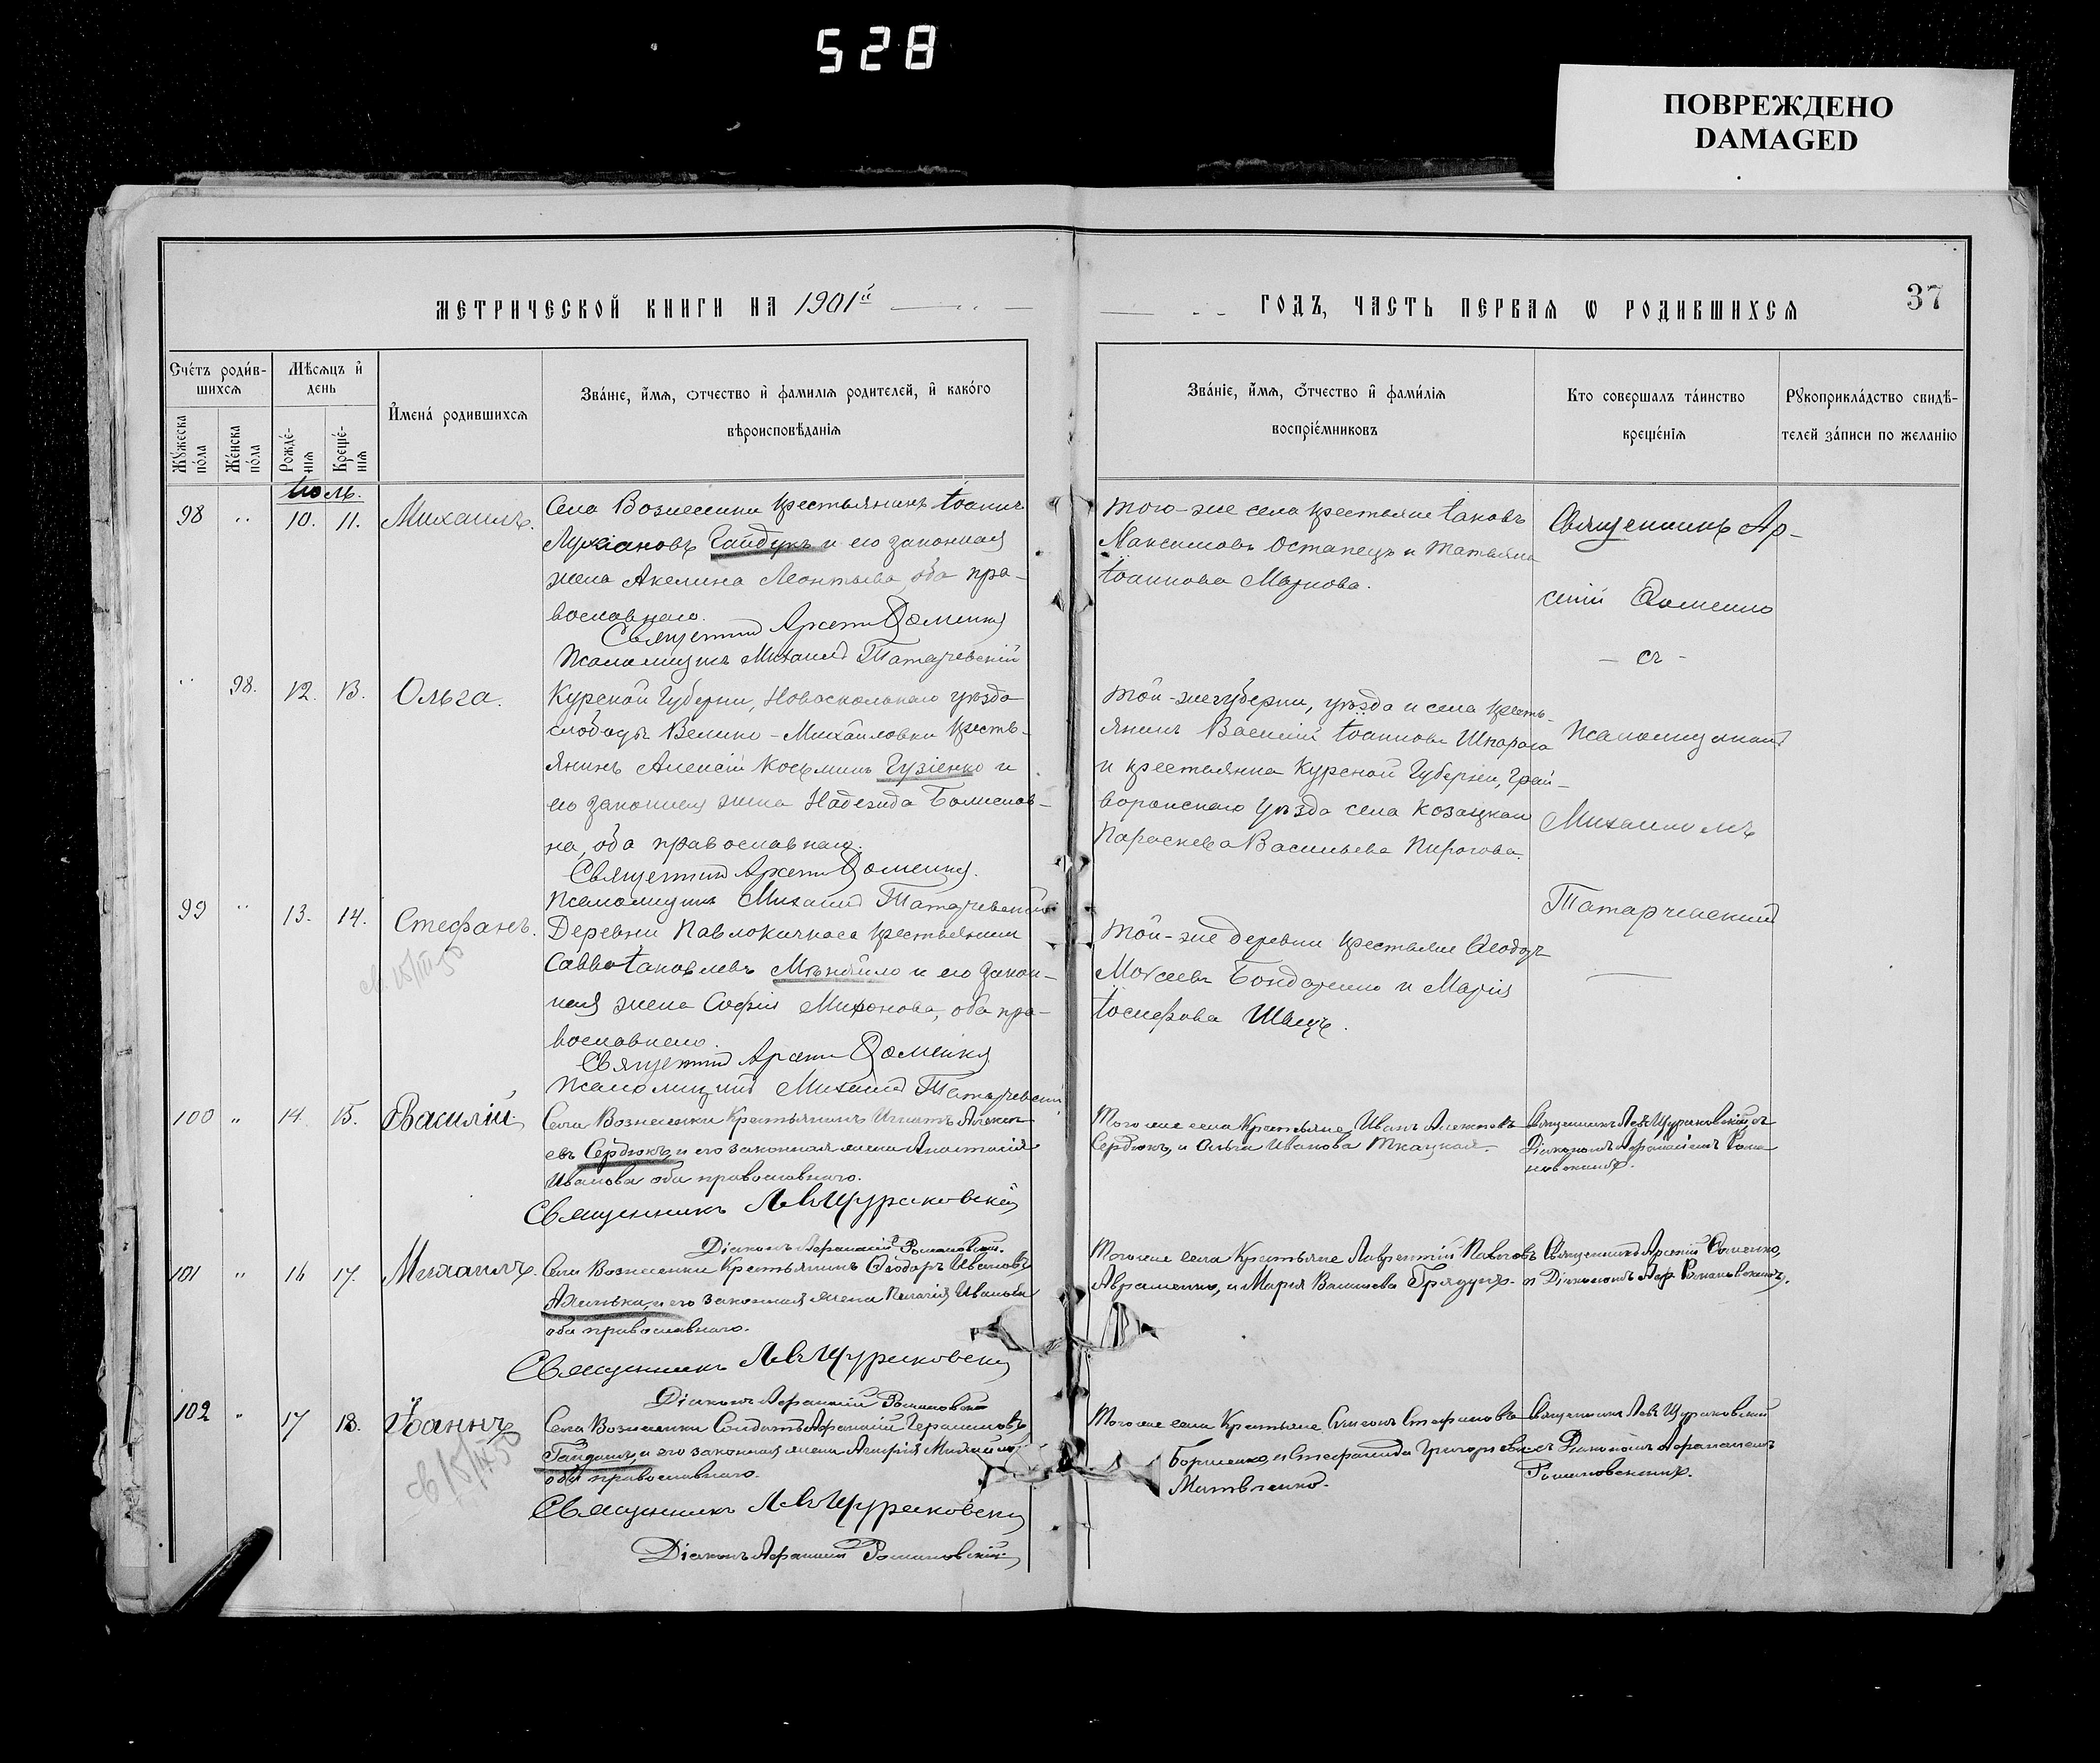 528
ПОВРЕЖДЕНО
DAMAGED
МЕТРИЧЕСКОЙ КНИГИ НА 1901й
ГОДЪ, ЧАСТЬ ПЕРВАЯ Ѡ РОДИВШИХСЯ
37
Сче́тъ роди́в-
шихсѧ
Мѣ́сѧцъ и҆
день
Мꙋ́жеска
по́ла
Же́нска
по́ла
Рожде́-
нїѧ
Креще́-
нїѧ
И҆мена́ родившихсѧ
Зва́нїе, и҆́мѧ, ѻ҆́тчество и҆ фамилїѧ родителей, и҆ како́гѡ
вѣроисповѣ́данїѧ
Зва́нїе, и҆́мѧ, ѻ҆́тчество и҆ фами́лїѧ
воспрїе́мниковъ
Кто соверша́лъ та́инство
креще́нїѧ
Рꙋкоприкла́дство свидѣ́-
телей за́писи по жела́нїю
Іюль.
98 " 10. 11. Михаилъ.
Села Вознесенки крестьянинъ Іоаннъ
Лукіановъ Гайдукъ и его законная
жена Акелина Леонтьева, оба пра-
вославнаго.
Священник Арсений Фоменко
Псаломщикъ Михаилъ Татарчевскій
Того-же села крестьяне Іаковъ
Максимовъ Остапецъ и Татьяна
Іоаннова Маркова.
Священникъ Ар-
сеній Фоменко
- съ -
" 98. 12. 13. Ольга.
Курской Губерніи, Новооскольскаго уѣзда
слободы Велико-Михайловки кресть-
янинъ Алексій Косьминъ Гузіенко и
его законная жена Надежда
на, оба православнаго.
Священник Арсений Фоменко.
Псаломщикъ Михаилъ Татарчевскій
Той-же губерніи, уѣзда и села кресть-
янинъ Василій Іоанновъ Шпарага
и крестьянка Курской Губерніи, Грай-
воронскаго уѣзда села Козацкаго
Параскева Васильева Пирогова.
Псаломщикомъ
Михаиломъ
Татарчевскимъ
99 " 13. 14. Стефанъ.
Деревни Павлокичкаса крестьянинъ
Савва Іаковлевъ Мѣняйло и его закон-
ная жена Софія Миронова, оба пра-
вославнаго.
Священник Арсений Фоменко
Псаломщикъ Михаилъ Татарчевскій
Той-же деревни крестьяне Ѳеодоръ
Моѵсеевъ Бондаренко и Марія
Іосифова Швецъ.
100 " 14. 15. Василій.
Села Вознесенки Крестьянинъ Игнатъ Алексе-
евъ Сердюкъ, и его законная жена Анастасія
Иванова оба православнаго.
Священникъ Левъ Щуриковскій
Діаконъ Афанасій Романовскій.
Того же села Крестьяне Иванъ Алексѣевъ
Сердюкъ, и Ольга Иванова Ткацкая.
Священникъ Левъ Щуриковскій съ
Діакономъ Афанасіемъ Рома-
новскимъ.
101 " 16 17. Михаилъ.
Села Вознесенки Крестьянинъ Ѳеодоръ Ивановъ
и его законная жена Пелагія Иванова
оба православнаго.
Священникъ Левъ Щуриковскій
Діаконъ Афанасій Романовскій
Того же села Крестьяне Лаврентій Павловъ
Авраменко, и Марія Васильева
Священникъ Арсеній Фоменко,
и Діакономъ Аф. Романовскимъ.
102 " 17 18. Іоаннъ
Села Вознесенки Солдатъ Афанасій Герасимовъ
и его законная жена Михайлова
оба православнаго.
Священникъ Левъ Щуриковскій
Діаконъ Афанасій Романовскій
Того же села Крестьяне Стефановъ
Борисенко, и Стефанида Григорьева
Матвѣенко.
Священникъ Левъ Щуриковскій
съ Діакономъ Афанасіемъ
Романовскимъ.